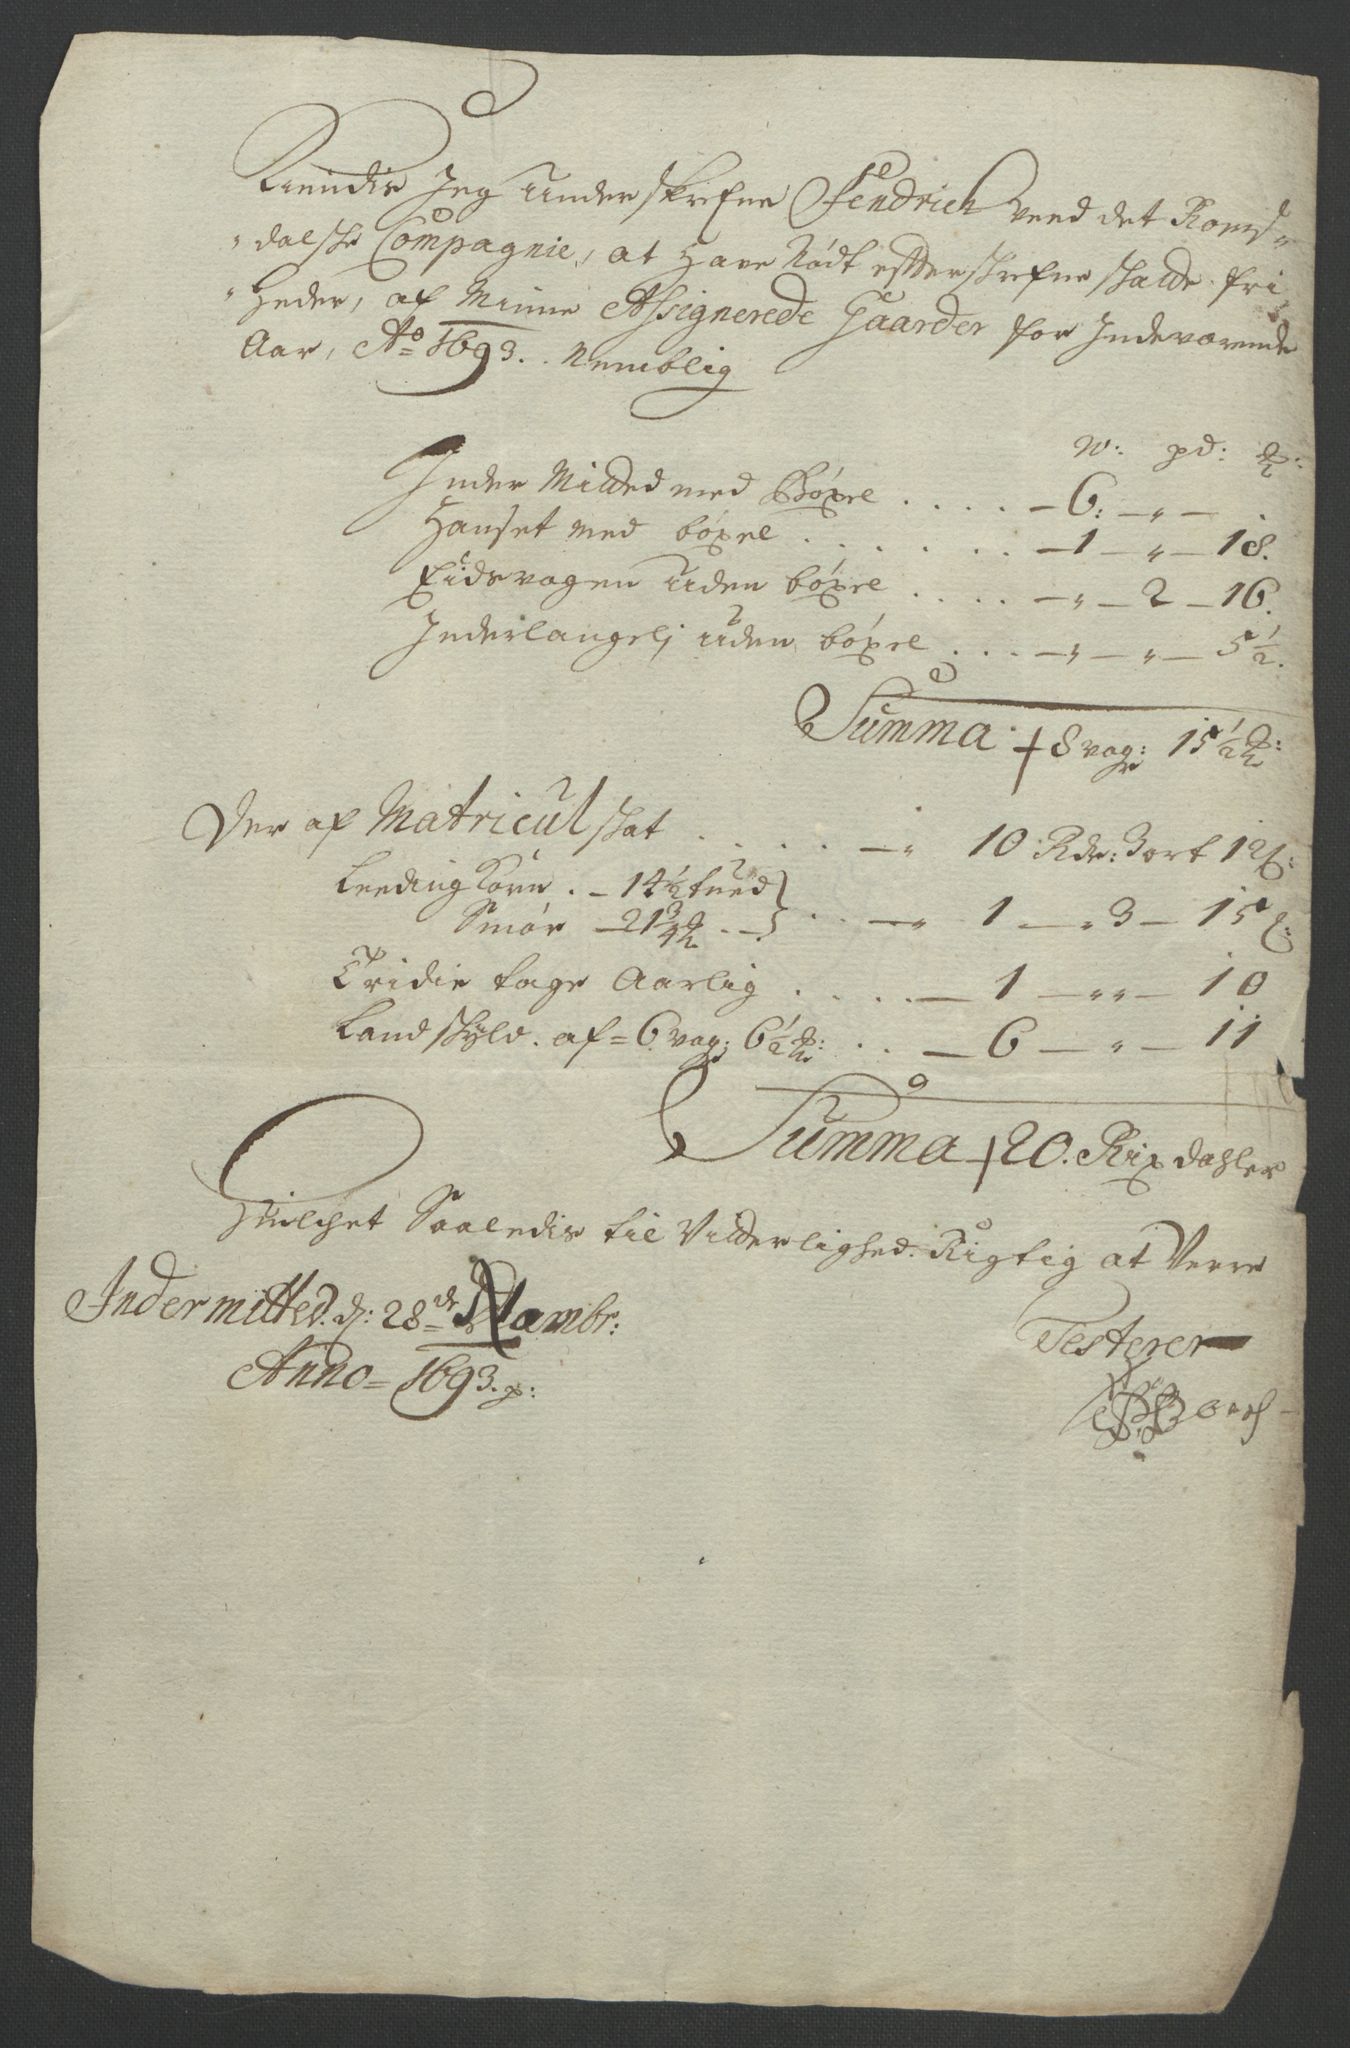 Kiendis Jeg Underskrefne Fendrich veed det Romsd-
"dalske Compagnie, at Have Nødt effterskrefne skatte fri
"Heder, af Minne Assignerede Gaarder for Indeværende
Aar, Ao 1693. Nemblig
w: pd: ℔:
Inder Mitted med Bøxel . . . . — 6: — „ — .
Hanset med bøxel . . . . . . — 1 — „ — 18.
Eidsvogen uden bøxel . . . . — „ — 2 — 16.
Inderlangelj uden bøxel . . . — „ — „ — 5½.
Summa 8 vog: 15½ ℔:
Der af Matricul skat . . . . . — „ 10 Rdr: 3 ort 12 ß:
Leeding Korn . — 14½ tued
Smør — 21¾ ℔ . — . . — „ 1 — „ 3 — 15 ß:
Tridie tage Aarlig . . . . — 1 — „ „ — 10
Landskyld . af = 6 vog: 6½ ℔: . . — 6 — „ — 11
Summa 20. Rix dahler
Huilchet Saaledis til Vitterlighed Rigtig at Verre
Indermitted. d: 28de
Anno = 1693. p:
Testerer